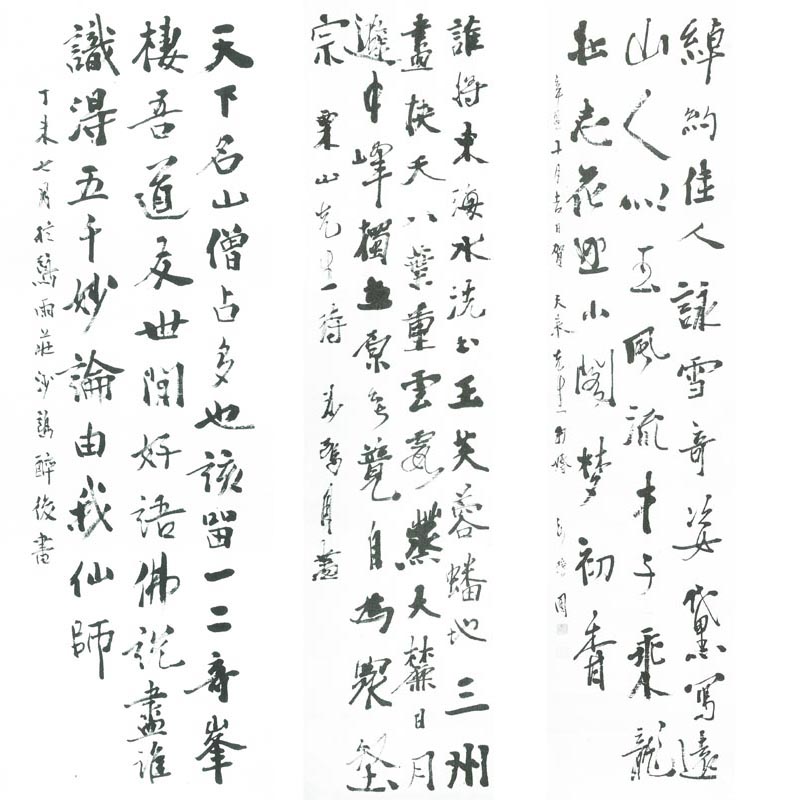 綽約佳人詠雪奇姿黛寫遠
山人似玉風流才子乘龍
壯志花迎小閣梦初香
辛 十月吉日賀 天
誰將東海水洗出玉芙蓉蟠地三州
盡 天八葉重雲 大麓日月
避中峰獨立原每覺自為眾壑
宗 栗山先生一待 自
天下名山僧占多也該留一二奇峯
棲吾道友世間好語佛說盡誰
識得五千妙論由我仙師
丁未七月於 雨莊沙 醉後書